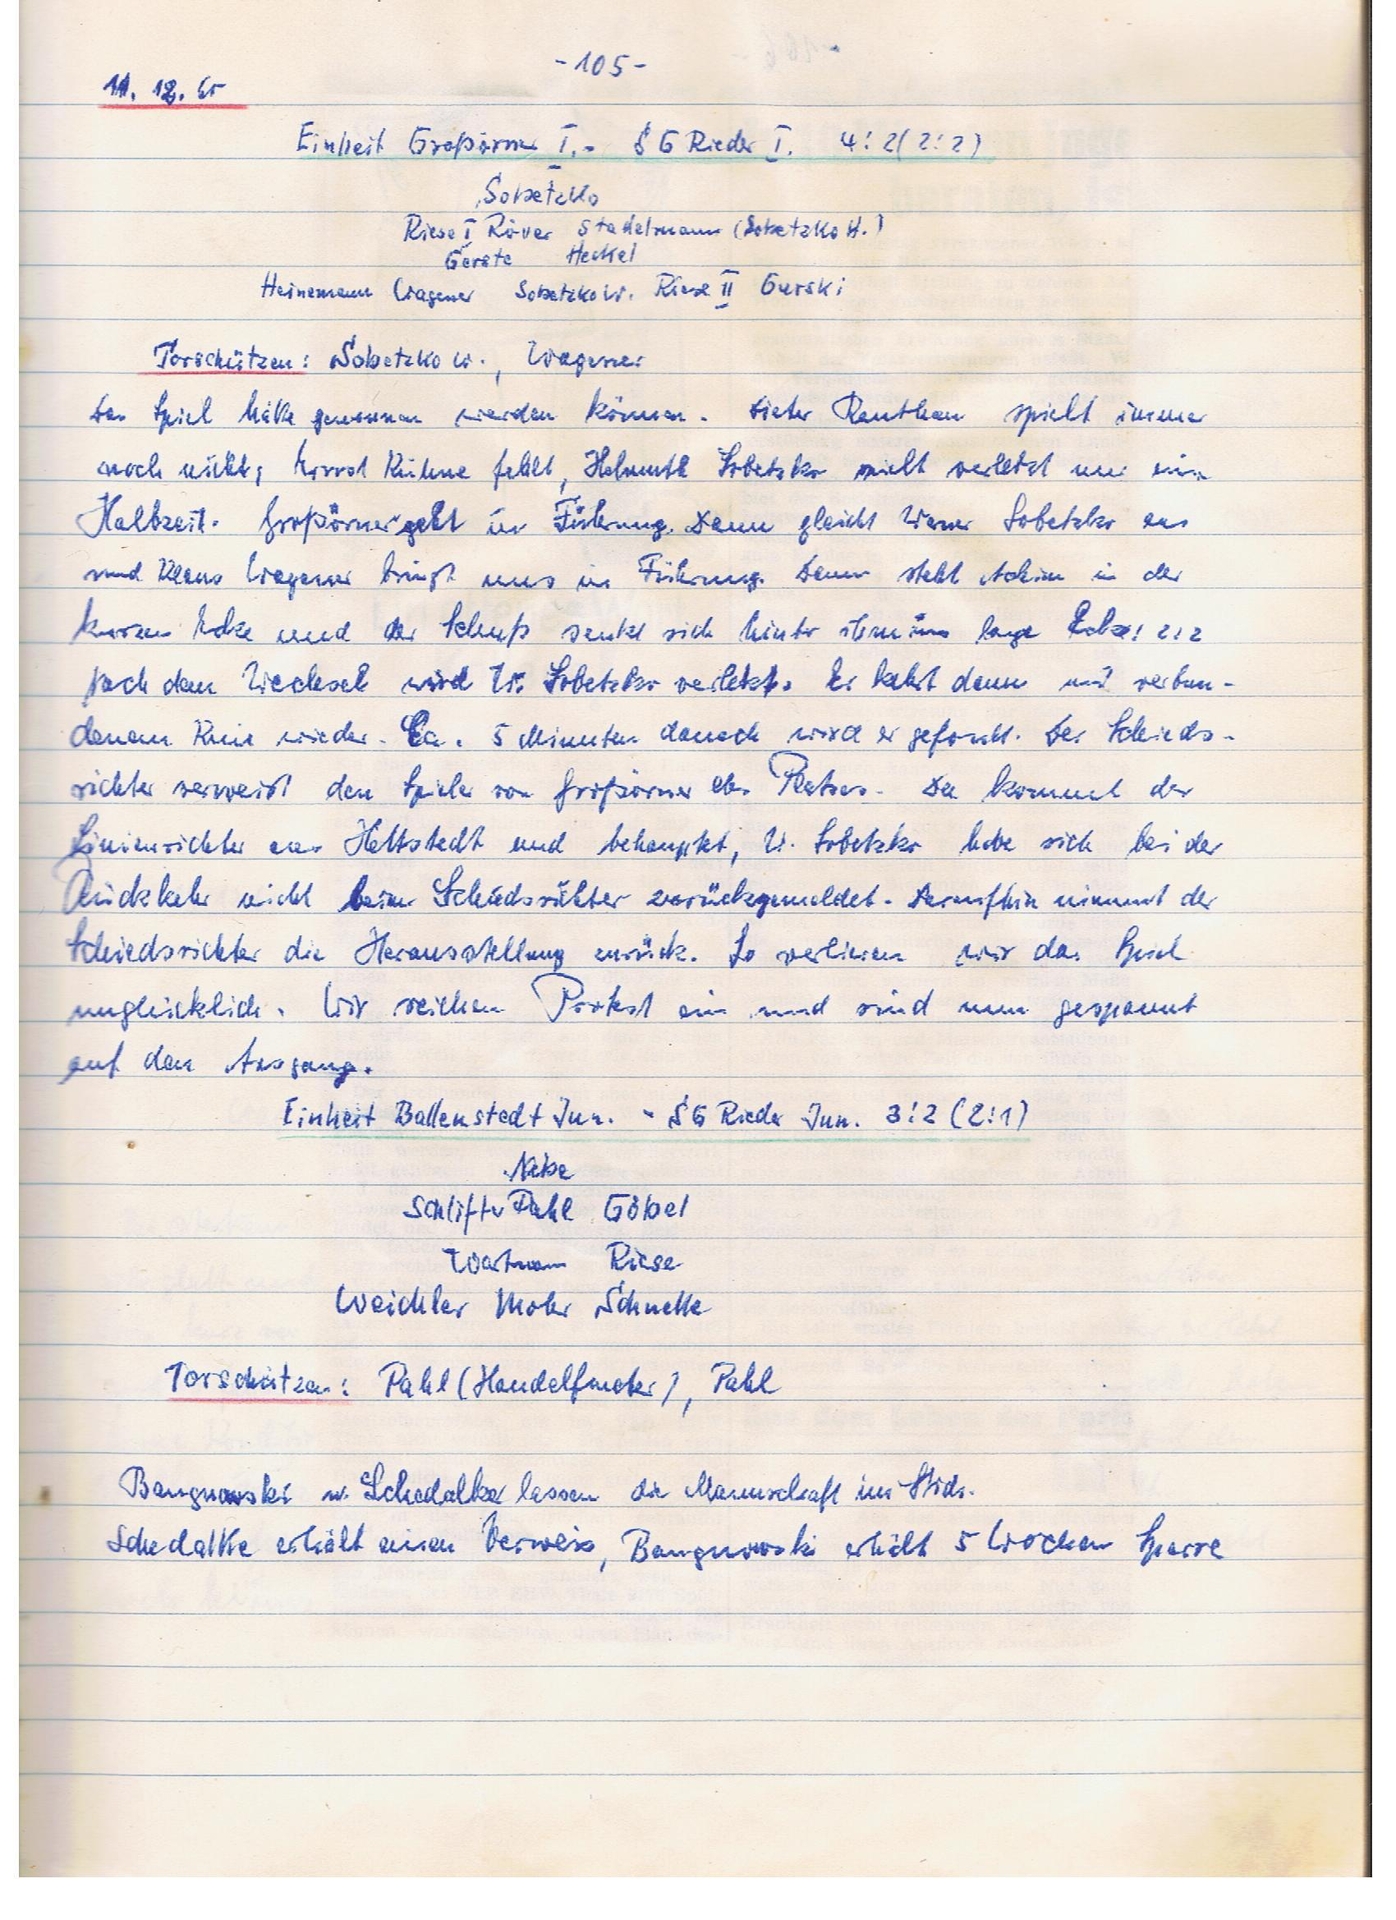 -105-
11. 12. 65
Einheit Großörner I. - SG Rieder I. 4:2 (2:2)
Sobetzko
Riese I Röver Stadelmann (Sobetzko H.)
Gerate Heckel
Heinemann Wagener Sobetzko W. Riese II Gurski
Torschützen: Sobetzko W., Wagener
Das Spiel hätte gewonnen werden können. Dieter spielt immer
noch nicht, Horst Kühne fehlt, Helmuth Sobetzko spielt verletzt nur eine
Halbzeit. Großörner geht in Führung. Dann gleicht Werner Sobetzko aus
und Klaus Wagener bringt uns in Führung. Dann steht Achim in der
kurzen Ecke und der Schuß senkt sich hinter ihm ins lange Ecke: 2:2
Nach dem Wechsel wird W. Sobetzko verletzt. Er kehrt dann mit verbun-
denem Knie wieder. Ca. 5 Minuten danach wird er gefoult. Der Schieds-
richter verweist den Spieler von Großörner des Platzes. Da kommt der
Linienrichter aus Hettstedt und behauptet, W. Sobetzko habe sich bei der
Rückkehr nicht beim Schiedsrichter zurückgemeldet. Daraufhin nimmt der
Schiedsrichter die Herausstellung zurück. So verlieren wir das Spiel
unglücklich. Wir reichen Protest ein und sind nun gespannt
auf den Ausgang.
Einheit Ballenstedt Jun. - SG Rieder Jun. 3:2 (2:1)
Nebe
Schlifty Pahl Göbel
Riese
Weichler Mohr Schnelle
Torschützen: Pahl (Handelfmeter), Pahl
Bangnowski u. Schedalke lassen die Mannschaft im Stich.
Schedalke erhält einen Verweis, Bangnowski erhält 5 Wochen Sperre